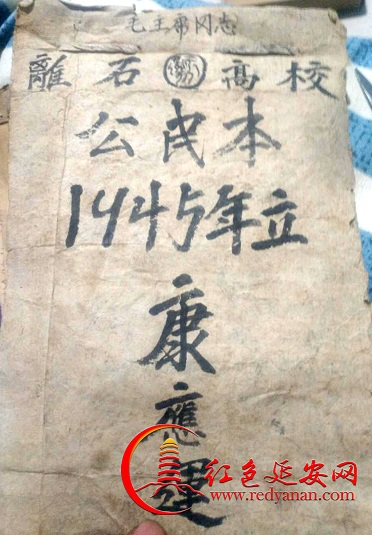 毛主席同志
離石高校
公民本
1945年立
康應運
红色延安网
www.redyanan.com